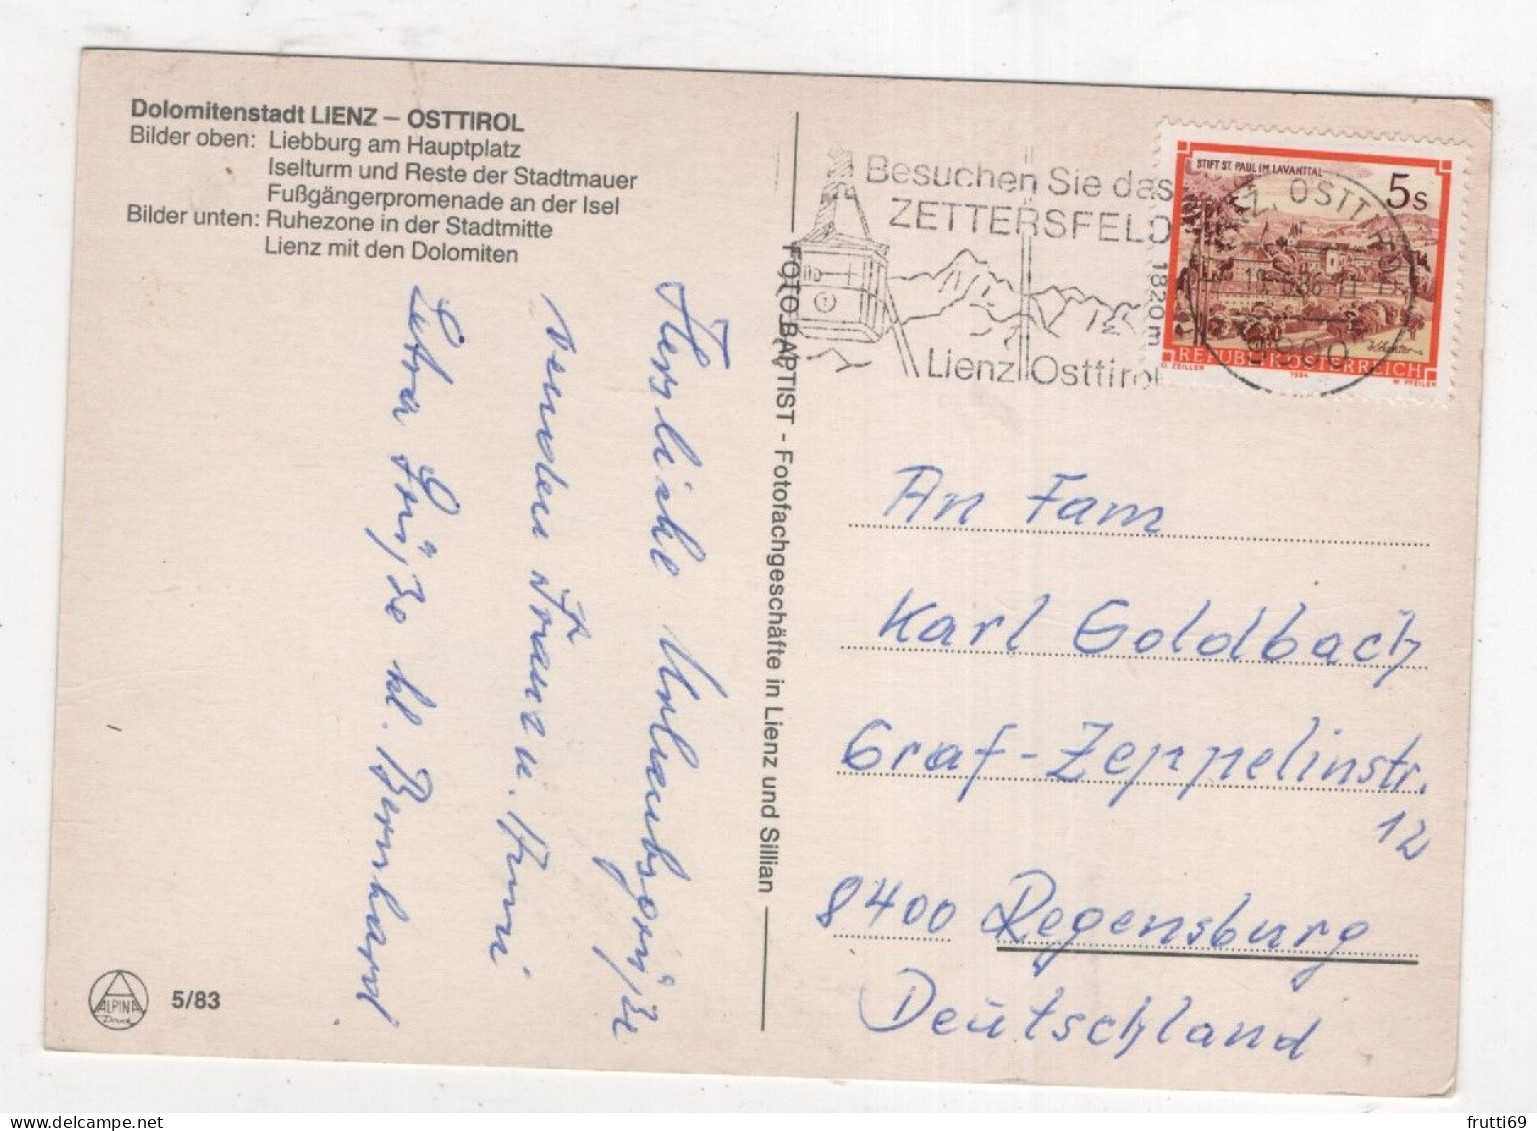 Dolomitenstadt LIENZ – OSTTIROL
Bilder oben: Liebburg am Hauptplatz
Iselturm und Reste der Stadtmauer
Fußgängerpromenade an der Isel
Bilder unten: Ruhezone in der Stadtmitte
Lienz mit den Dolomiten
Herzliche Urlaubsgrüße
senden Franz u. Anni
Extra Grüße kl. Bernhard.
ALPINA
Druck
5/83
FOTO BAPTIST - Fotofachgeschäfte in Lienz und Sillian
Besuchen Sie das
ZETTERSFELD
1820m
Lienz Osttirol
STIFT ST. PAUL IM LAVANTTAL
5s
REPUBLIK ÖSTERREICH
O. ZEILLER 1984 W. PFEILER
OSTTIROL
9900
An Fam
Karl Goldbach
Graf-Zeppelinstr.
12
8400 Regensburg
Deutschland
frutti69